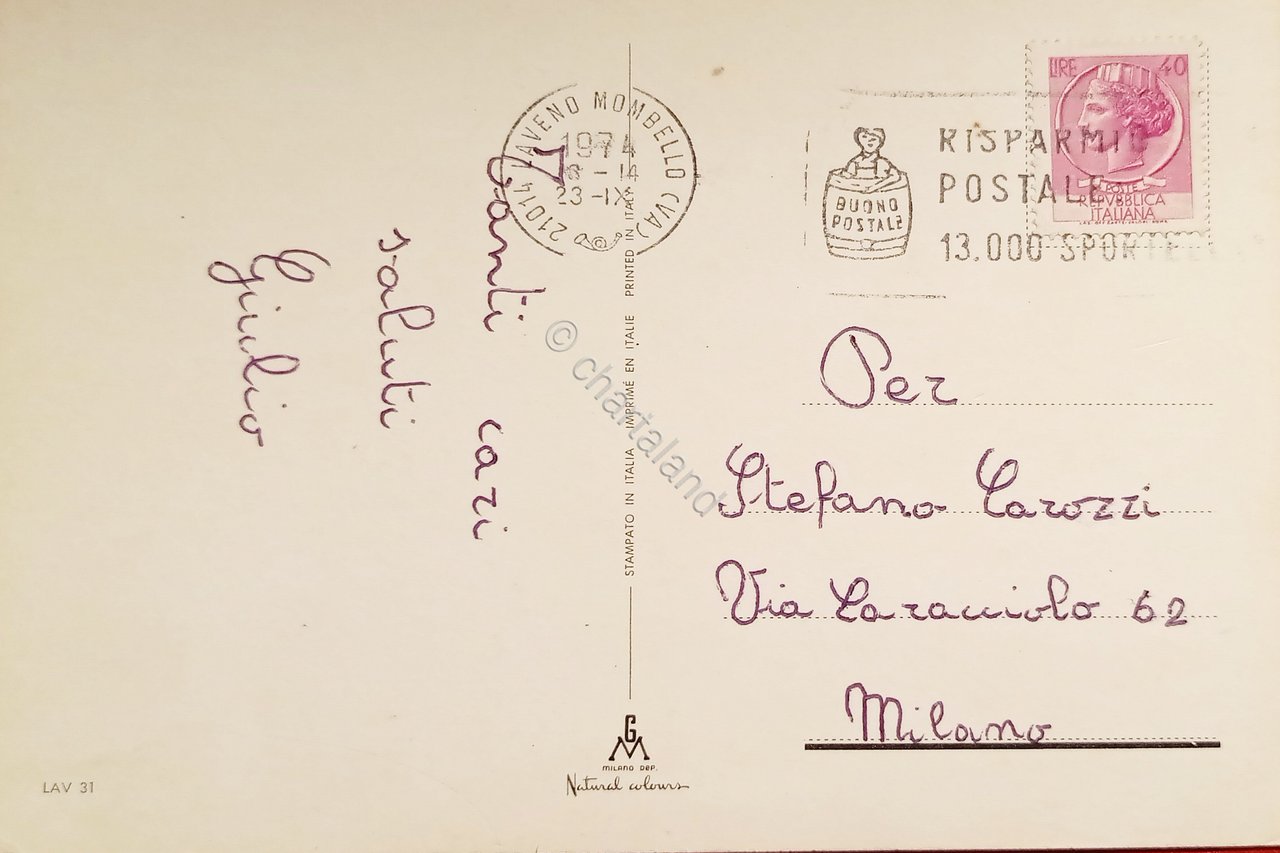 Tanti cari
saluti
Giulio
21014 LAVENO MOMBELLO (VA)
1974
18 - 14
23 - IX
BUONO
POSTALE
RISPARMIO
POSTALE
13.000 SPORTELLI
LIRE 40
POSTE
REPVBBLICA
ITALIANA
Per
Stefano Carozzi
Via Caracciolo 62
Milano
STAMPATO IN ITALIA IMPRIMÉ EN ITALIE PRINTED IN ITALY
GM
MILANO DEP.
Natural colours
LAV 31
© chartaland